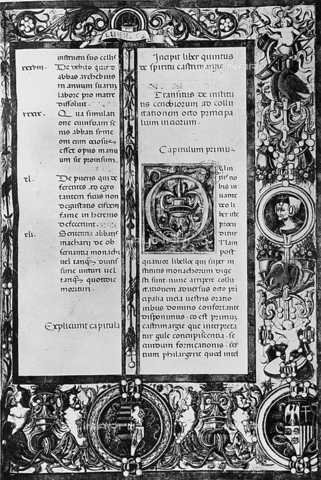 institutis suis cellis
xxxviii. De debito quod
abbas archebius
manuum suarum
labore pro matre
dissoluit.
xxxix. Qua simulati
one cuiusdam se
nis abbati symeo
cum ociosus
esset opus manu
um sit prouisum.
xl. De pueris qui de
ferentes ad egro
tantem ficus non
degustatis eisdem
fame in heremo
defecerunt.
xli. Sententia abbatis
macharij de ob
seruantia monachi
uel tanquam diutis
sime uicturi uel
tanquam quottidie
morituri.
Expliciunt capitula
Incipit liber quintus
de spiritu castrimargie.
Transitus de institu
tis cenobiorum ad collu
ctationem octo principa
lium uiciorum.
Capitulum primum
Quin
tus no
bis iu
uante
deo li
ber iste
procu
ditur
Nam
post
quatuor libellos qui super in
stitutis monachorum dige
sti sunt nunc arripere collu
ctationem aduersus octo pri
cipalia uicia uestris oratio
nibus domino confortante
disponimus. id est primum
castrimargie que interpreta
tur gule concupiscentia. se
cundum fornicationis. ter
tium philargirie quod intel